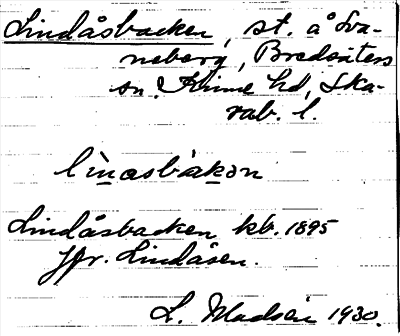 Lindåsbacken, st. å Sva-
neberg, Bredsäters
sn. Kinne hd, Ska-
rab. l.
Lindåsbacken kb. 1895
Jfr. Lindåsen.
L. Madsén 1930.